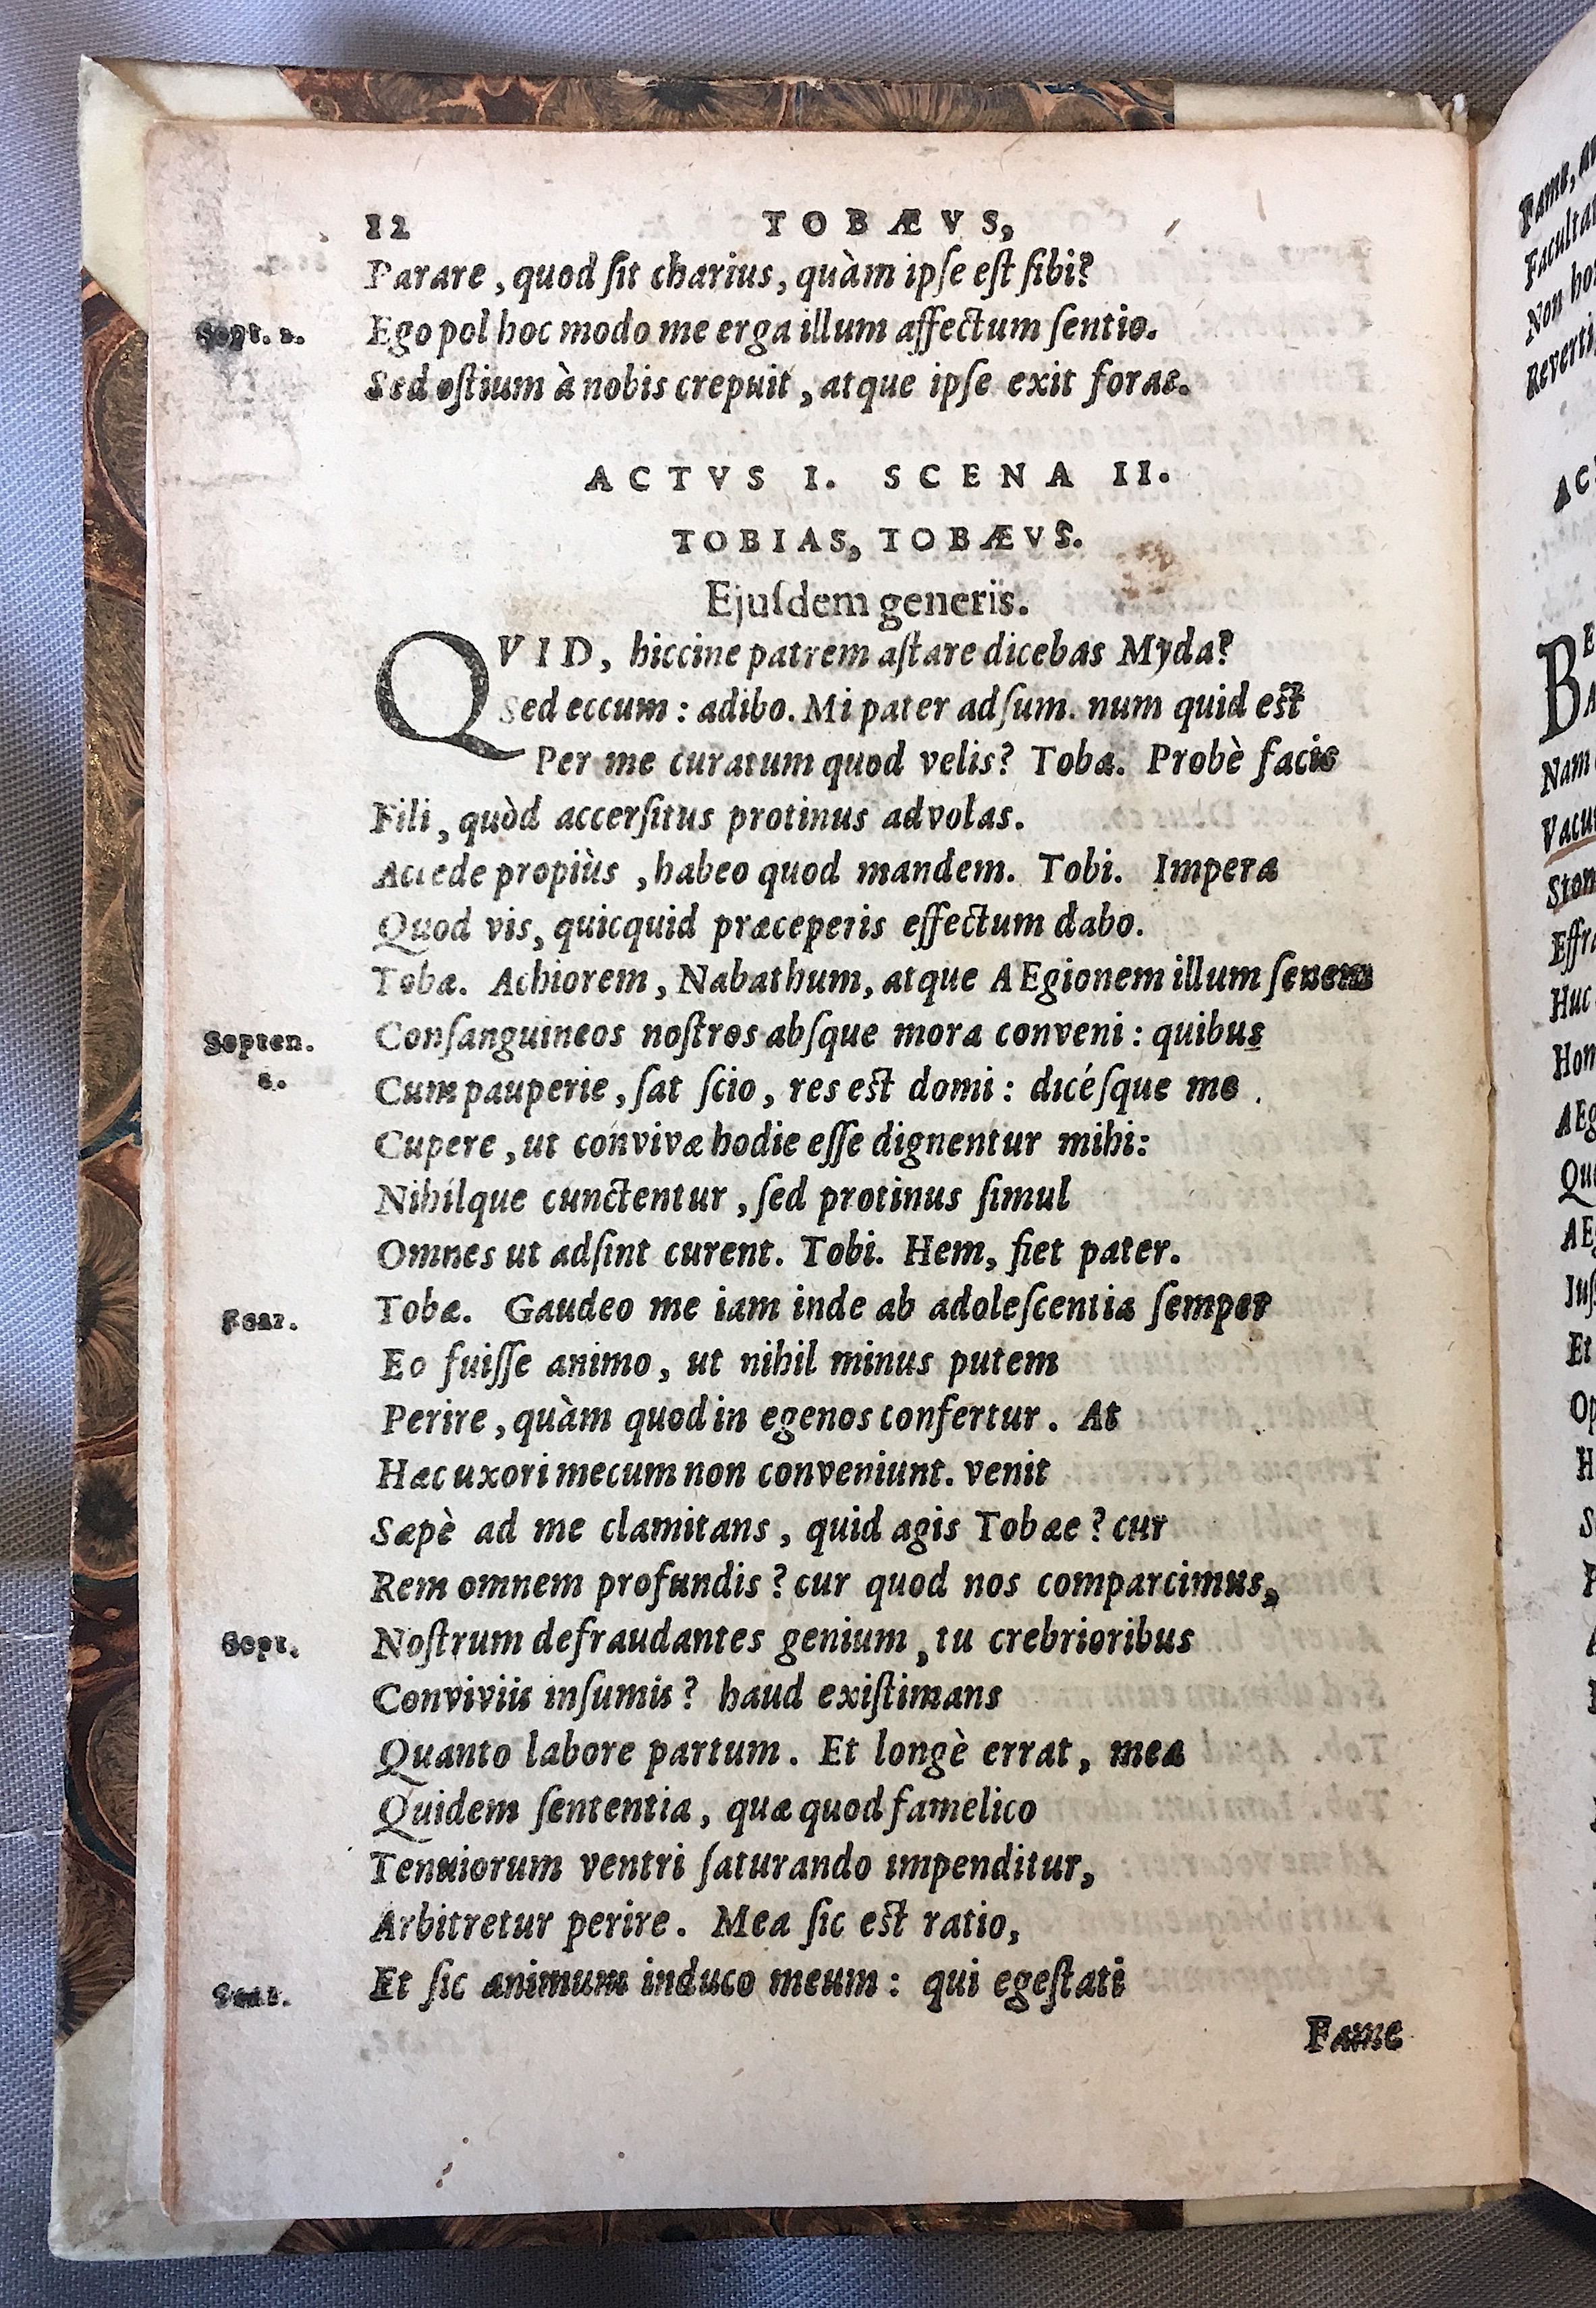 12 TOBÆVS,
Parare, quod ſit charius, quàm ipſe eſt ſibi?
Sept. 2. Ego pol hoc modo me erga illum affectum ſentio.
Sed oſtium à nobis crepuit, atque ipſe exit foras.
ACTVS I. SCENA II.
TOBIAS, TOBÆVS.
Ejuſdem generis.
QVID, hiccine patrem aſtare dicebas Myda?
Sed eccum : adibo. Mi pater adſum. num quid eſt
Per me curatum quod velis? Toba. Probè facis
Fili, quòd accerſitus protinus advolas.
Accede propiùs, habeo quod mandem. Tobi. Impera
Quod vis, quicquid præceperis effectum dabo.
Tobæ. Achiorem, Nabathum, atque AEgionem illum ſenem
Septen. Conſanguineos noſtros abſque mora conveni : quibus
Cum pauperie, ſat ſcio, res eſt domi : dicéſque me
Cupere, ut convivæ hodie eſſe dignentur mihi:
Nihilque cunctentur, ſed protinus ſimul
Omnes ut adſint curent. Tobi. Hem, fiet pater.
Tobæ. Gaudeo me iam inde ab adoleſcentia ſemper
Eo fuiſſe animo, ut nihil minus putem
Perire, quàm quod in egenos confertur. At
Hæc uxori mecum non conveniunt. venit
Sæpè ad me clamitans, quid agis Tobæe? cur
Rem omnem profundis? cur quod nos comparcimus,
Sept. Noſtrum defraudantes genium, tu crebrioribus
Conviviis inſumis? haud exiſtimans
Quanto labore partum. Et longè errat, mea
Quidem ſententia, quæ quod famelico
Tenuiorum ventri ſaturando impenditur,
Arbitretur perire. Mea ſic eſt ratio,
Et ſic animum induco meum : qui egeſtati
Fame